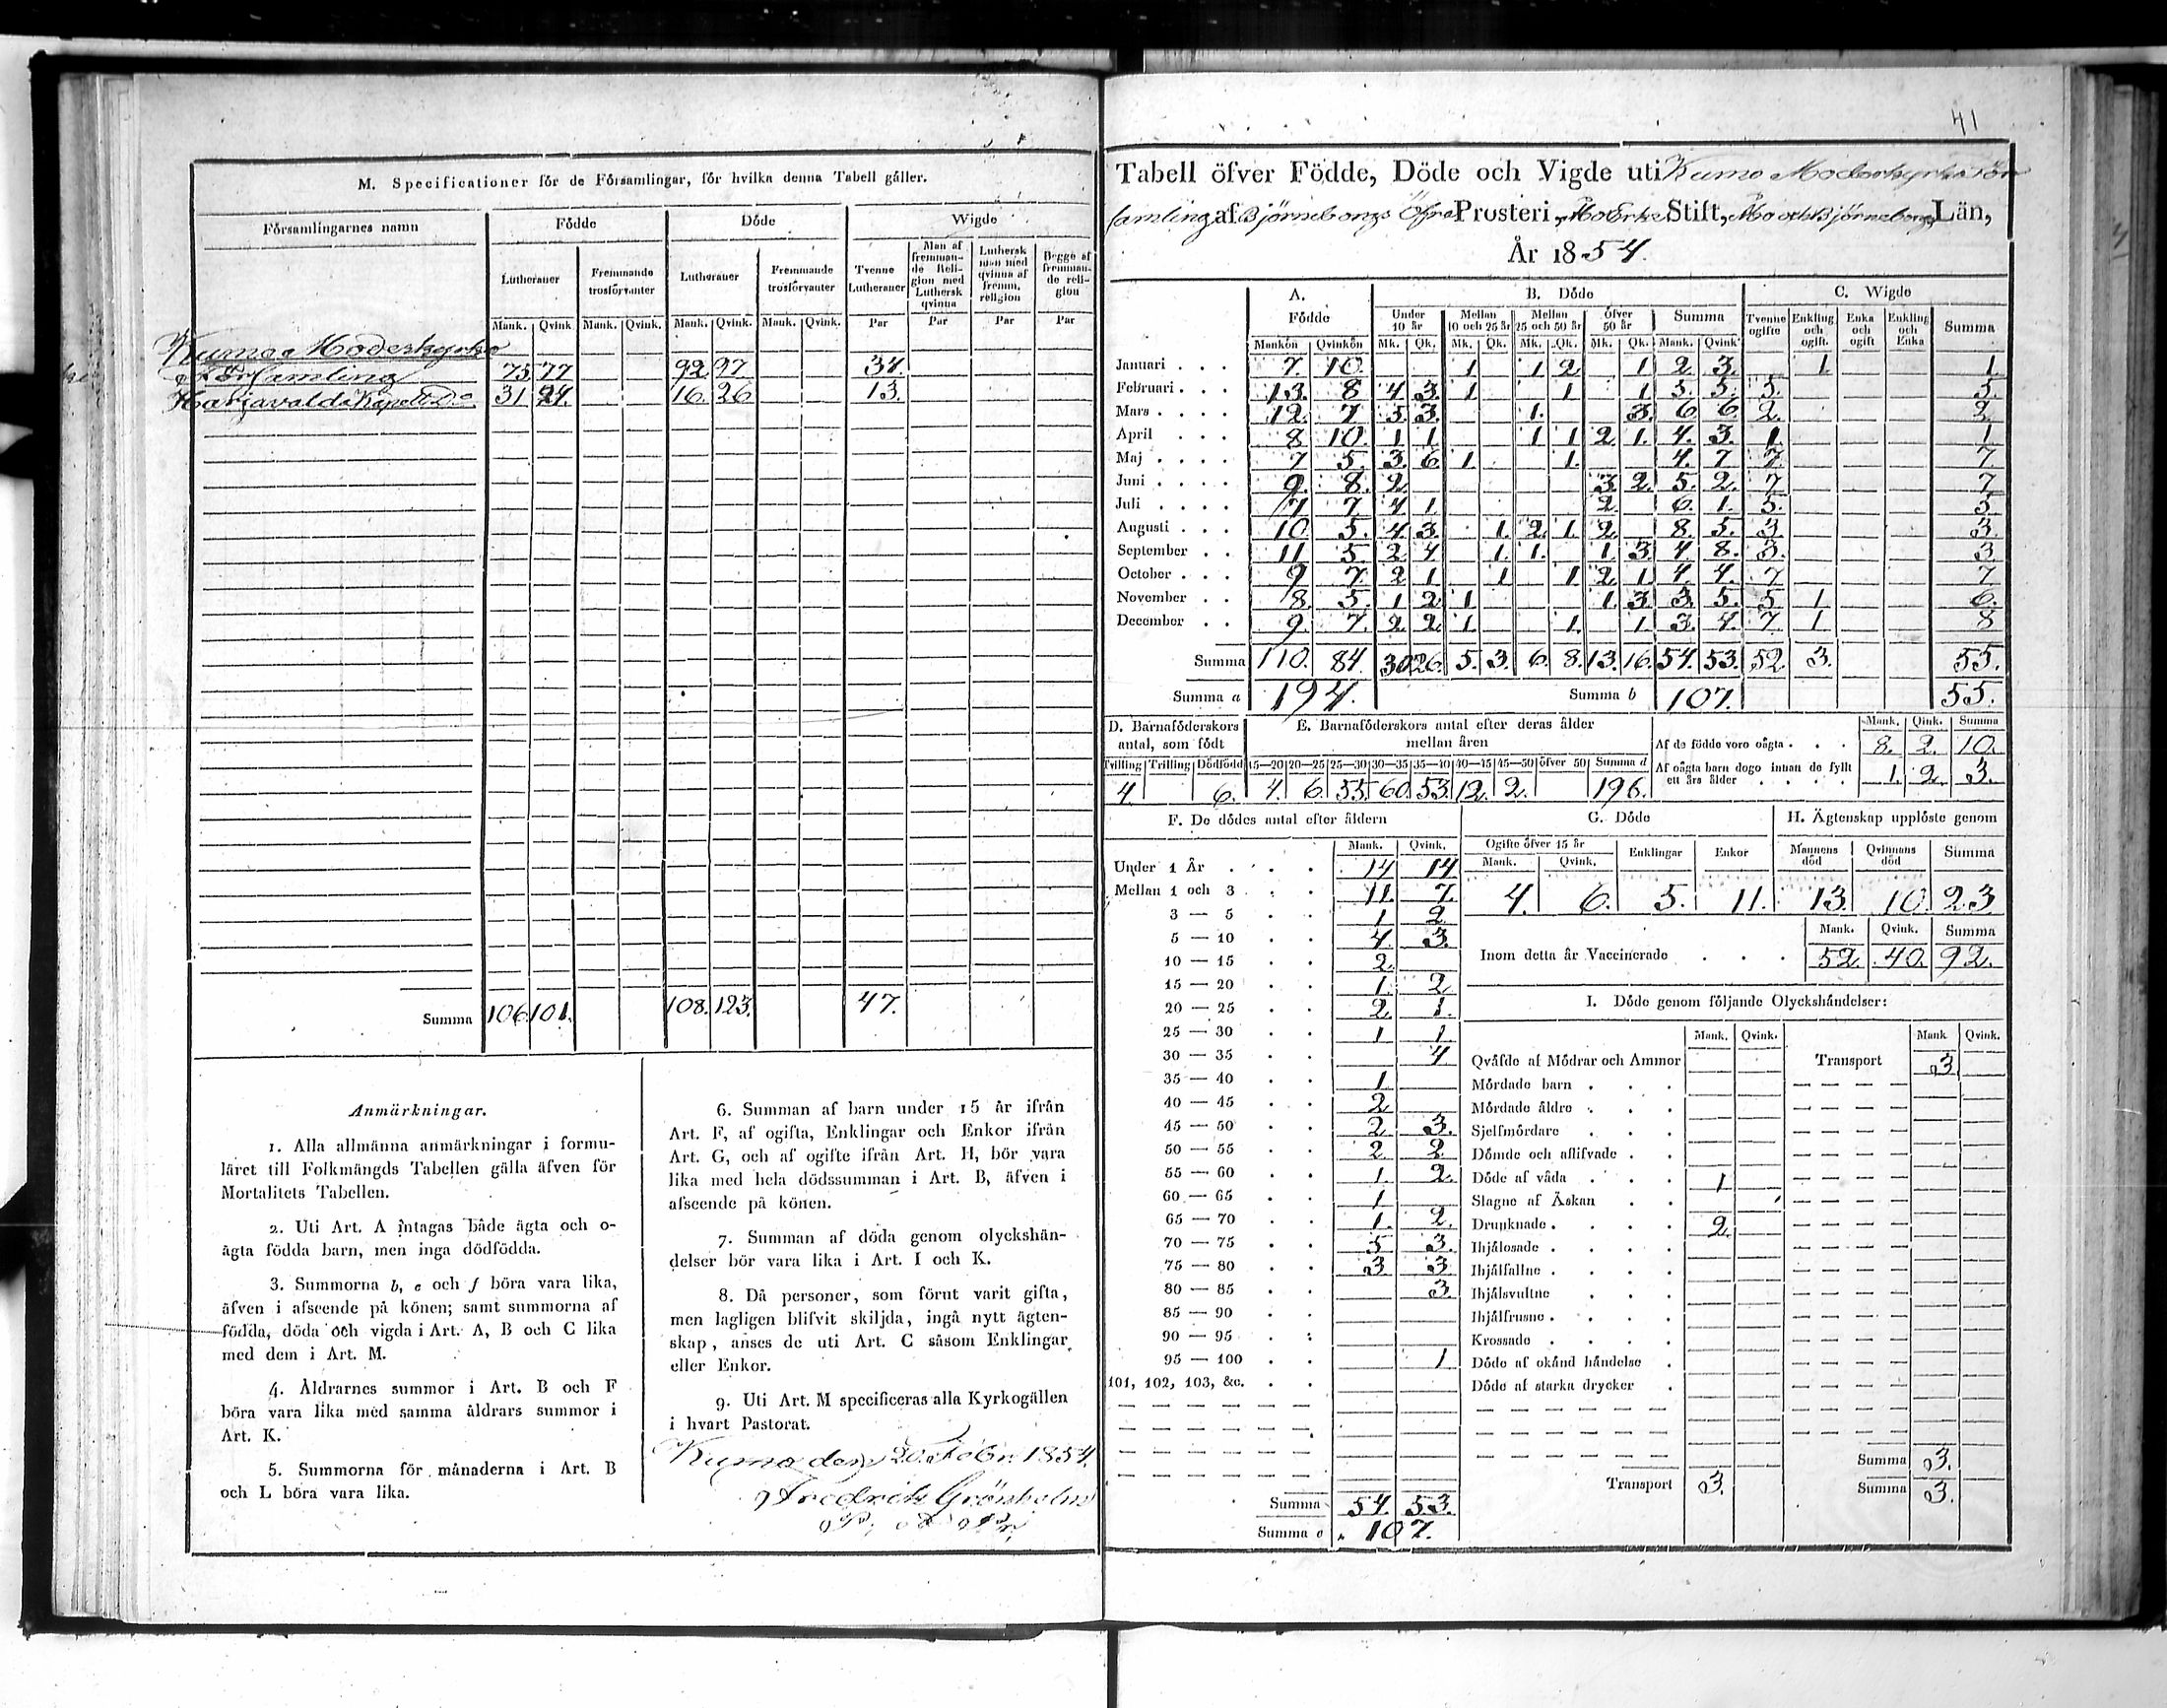 M. Specificationer för de Församlingar, för hvilka denna Tabell gäller.
Församlingarnes namn | Födde | Döde | Wigde
Lutheraner | Fremmande trosförvanter | Lutheraner | Fremmande trosförvanter | Tvenne Lutheraner | Man af fremmande Religion med Luthersk qvinna | Luthersk man med qvinna af fremm. religion | Begge af fremmande religion
Mank. | Qvink. | Mank. | Qvink. | Mank. | Qvink. | Mank. | Qvink. | Par | Par | Par | Par
Kumo Moderkyrko
Församling 75 77 92 97 34.
Harjavalda Kapell Do 31 24. 16. 26 13.
Summa 106. 101. 108. 123. 47.
Anmärkningar.
1. Alla allmänna anmärkningar i formu-
läret till Folkmängds Tabellen gälla äfven för
Mortalitets Tabellen.
2. Uti Art. A intagas både ägta och o-
ägta födda barn, men inga dödfödda.
3. Summorna b, e och f böra vara lika,
äfven i afseende på könen; samt summorna af
födda, döda och vigda i Art. A, B och C lika
med dem i Art. M.
4. Åldrarnes summor i Art. B och F
böra vara lika med samma åldrars summor i
Art. K.
5. Summorna för månaderna i Art. B
och L böra vara lika.
6. Summan af barn under 15 år ifrån
Art. F, af ogifta, Enklingar och Enkor ifrån
Art. G, och af ogifte ifrån Art. H, bör vara
lika med hela dödssumman i Art. B, äfven i
afseende på könen.
7. Summan af döda genom olyckshän-
delser bör vara lika i Art. I och K.
8. Då personer, som förut varit gifta,
men lagligen blifvit skiljda, ingå nytt ägten-
skap, anses de uti Art. C såsom Enklingar
eller Enkor.
9. Uti Art. M specificeras alla Kyrkogällen
i hvart Pastorat.
Kumo den 20 Febr. 1854.
Fredrik Grönholm
41
Tabell öfver Födde, Döde och Vigde uti Kumo Moderkyrko för
samling af Björneborgs Öfre Prosteri, Åbo Erke Stift, Åbo och Björneborgs Län,
År 1854.
A. Födde | B. Döde | C. Wigde
Under 10 år | Mellan 10 och 25 år | Mellan 25 och 50 år | öfver 50 år | Summa | Tvenne ogifte | Enkling och ogift. | Enka och ogift | Enkling och Enka | Summa
Mankön | Qvinkön | Mk. | Qk. | Mk. | Qk. | Mk. | Qk. | Mk. | Qk. | Mank. | Qvink.
Januari . . . 7 10. 1 1 2 1 2 3. 1 1
Februari . . . 13. 8 4 3. 1 1 1 5. 5. 5. 5.
Mars . . . . 12. 7 5 3. 1. 3. 6 6. 2. 2
April . . . 8 10. 1 1 1 1 2 1. 4. 3. 1. 1
Maj . . . . 7 5. 3. 6. 1. 1. 4. 7 7. 7.
Juni . . . . 9. 8. 2 3. 2. 5. 2. 7 7
Juli . . . . 7 7. 4 1 2 6. 1. 5. 5
Augusti . . . 10 5. 4 3. 1. 2 1. 2 8. 5. 3. 3.
September . . 11 5. 2 4 1. 1. 1. 3. 4 8. 3. 3
October . . . 9 7. 2 1 1 1 2 1. 4. 4. 7 7
November . . 8 5. 1 2. 1 1. 3. 3. 5. 5 1 6.
December . . 9. 7. 2 2. 1. 1. 1. 3. 4. 7. 1 8
Summa 110. 84. 30 26. 5. 3. 6. 8. 13. 16. 54. 53. 52. 3. 55.
Summa a 194. Summa b 107. 55.
D. Barnaföderskors antal, som födt
Tvilling | Trilling | Dödfödd
4. 6.
E. Barnaföderskors antal efter deras ålder mellan åren
15—20 | 20—25 | 25—30 | 30—35 | 35—40 | 40—45 | 45—50 | öfver 50 | Summa d
4. 6. 55. 60. 53. 12. 2. 196.
Mank. | Qink. | Summa
Af de födde voro oägta . . . 8. 2. 10.
Af oägta barn dogo innan de fyllt ett års ålder . . . . 1. 2. 3.
F. De dödes antal efter åldern
Mank. | Qvink.
Under 1 År . . . 14 14
Mellan 1 och 3 . . . 11. 7.
3 — 5 . . 1 2
5 — 10 . . 4 3.
10 — 15 . . 2.
15 — 20 . . 1. 2
20 — 25 . . 2. 1.
25 — 30 . . 1 1
30 — 35 . . 4
35 — 40 . . 1.
40 — 45 . . 2
45 — 50 . . 2 3.
50 — 55 . . 2 2
55 — 60 . . 1. 2.
60 — 65 . . 1.
65 — 70 . . 1. 2.
70 — 75 . . 5 3.
75 — 80 . . 3 3
80 — 85 . . 3
85 — 90 . .
90 — 95 . .
95 — 100 . . 1
101, 102, 103, &c. . .
Summa 54. 53.
Summa e 107.
G. Döde
Ogifte öfver 15 år | Enklingar | Enkor
Mank. | Qvink.
4. 6. 5. 11.
H. Ägtenskap upplöste genom
Mannens död | Qvinnans död | Summa
13. 10. 23
Mank. | Qvink. | Summa
Inom detta år Vaccinerade . . . 52. 40. 92.
I. Döde genom följande Olyckshändelser:
Mank. | Qvink. | Mank | Qvink.
Qväfde af Mödrar och Ammor | Transport 3
Mördade barn . . .
Mördade äldre . . .
Sjelfmördare . .
Dömde och aflifvade . .
Döde af våda . . . 1
Slagne af Åskan . .
Drunknade . . . . 2.
Ihjälosade . . . .
Ihjälfallne . . . .
Ihjälsvultne . . .
Ihjälfrusne . . . .
Krossade . . . .
Döde af okänd händelse .
Döde af starka drycker .
Summa 3.
Transport 3. Summa 3.